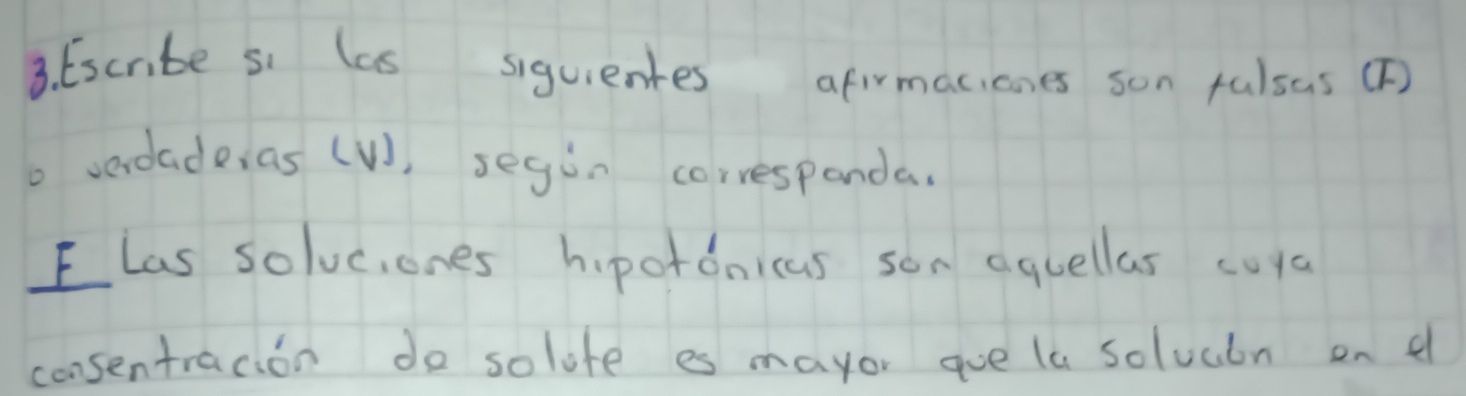 3. Escribe si las siguientes afirmaciones son falsas (F)
o verdaderas (V), según corresponda.
F Las soluciones hipotónicas son aquellas cuya
consentración de solute es mayor que la solución en el